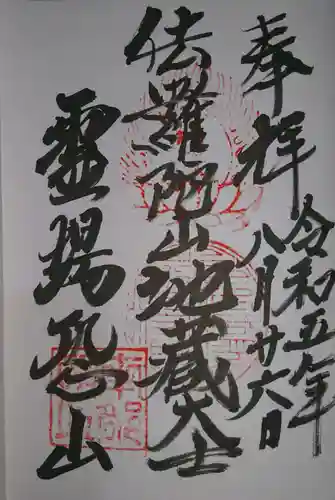 奉拝
令和五年
八月廿六日
伕羅陀山地蔵大士
霊場恐山